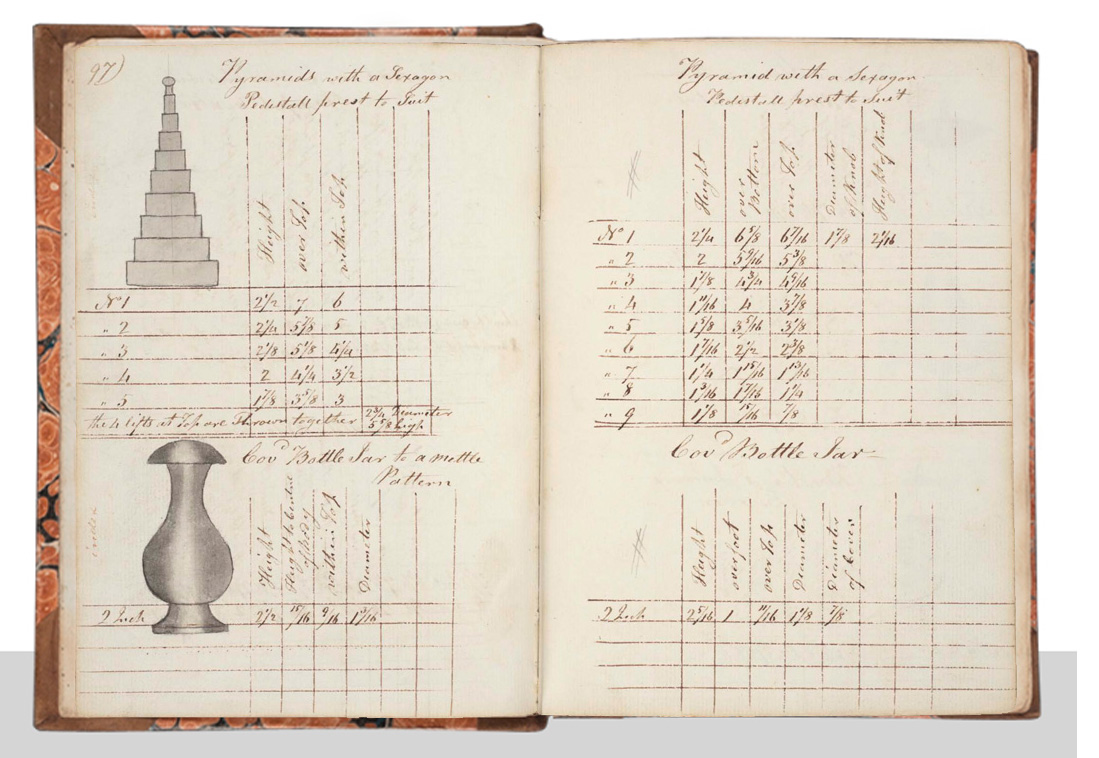 97)
Pyramids with a Sexagon
Pedestall prest to Suit
Height
over Top
within Top
No 1 2 1/2 7 6
" 2 2 1/4 5 7/8 5
" 3 2 1/8 5 1/8 4 1/4
" 4 2 4 1/4 3 1/2
" 5 1 7/8 3 5/8 3
the 4 lifts at Top are Thrown together 2 3/4 Diameter
5 5/8 high
Covd Bottle Jar to a mottle
Pattern
Height
of Body
within Top
Diameter
2 Inch 2 1/2 15/16 9/16 1 9/16
index
Pyramid with a Sexagon
Pedestall prest to Suit
Height
over Bottom
over Top
Diameter of Knob
Height of Knob
No 1 2 1/4 6 5/8 6 7/16 1 7/8 2 1/16
" 2 2 5 9/16 5 3/8
" 3 1 7/8 4 3/4 4 9/16
" 4 1 11/16 4 3 7/8
" 5 1 5/8 3 5/16 3 1/8
" 6 1 7/16 2 1/2 2 3/8
" 7 1 1/4 1 15/16 1 13/16
" 8 1 3/16 1 7/16 1 1/4
" 9 1 1/8 15/16 7/8
Covd Bottle Jar
Height
over foot
over Top
Diameter
Diameter of Cover
2 Inch 2 5/16 1 11/16 1 1/8 7/8